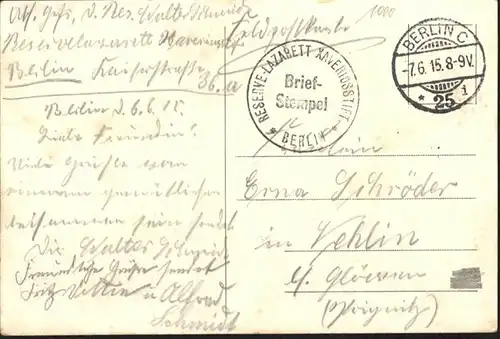 Abs. Gefr. d. Res. Walter Schmidt
Reservelazarett Xaveriusstift
Berlin Kaiserstrasse
36.a
Feldpostkarte
1000
BERLIN C
-7.6.15.8-9V.
* 25 i
RESERVE-LAZARETT XAVERIUSSTIFT
Brief-
Stempel
* BERLIN *
Berlin d. 6.6.15
Liebe Freundin!
Viele Grüße vom
gemütlichen
beisammen sein sendet
Dir Walter Schmidt
Freundliche Grüße sendet
Fritz u Alfred
Schmidt
Fräulein
Erna Schröder
in Vehlin
b/ Glöwen
(Prignitz)